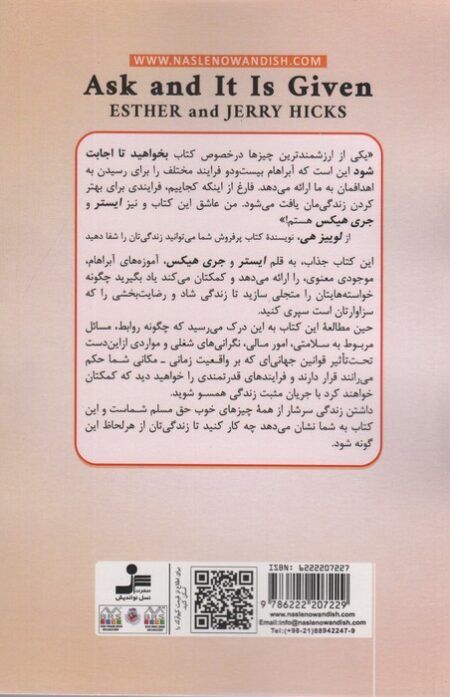 WWW.NASLENOWANDISH.COM
Ask and It Is Given
ESTHER and JERRY HICKS
«یکی از ارزشمندترین چیزها درخصوص کتاب بخواهید تا اجابت
شود این است که آبراهام بیست‌ودو فرایند مختلف را برای رسیدن به
اهدافمان به ما ارائه می‌دهد. فارغ از اینکه کجاییم، فرایندی برای بهتر
کردن زندگی‌مان یافت می‌شود. من عاشق این کتاب و نیز ایستر و
جری هیکس هستم!»
از لوییز هی، نویسندهٔ کتاب پرفروش شما می‌توانید زندگی‌تان را شفا دهید
این کتاب جذاب، به قلم ایستر و جری هیکس، آموزه‌های آبراهام،
موجودی معنوی، را ارائه می‌دهد و کمکتان می‌کند یاد بگیرید چگونه
خواسته‌هایتان را متجلی سازید تا زندگی شاد و رضایت‌بخشی را که
سزاوارتان است سپری کنید.
حین مطالعهٔ این کتاب به این درک می‌رسید که چگونه روابط، مسائل
مربوط به سلامتی، امور مالی، نگرانی‌های شغلی و مواردی ازاین‌دست
تحت‌تأثیر قوانین جهانی‌ای که بر واقعیت زمانی ـ مکانی شما حکم
می‌رانند قرار دارند و فرایندهای قدرتمندی را خواهید دید که کمکتان
خواهند کرد با جریان مثبت زندگی همسو شوید.
داشتن زندگی سرشار از همهٔ چیزهای خوب حق مسلم شماست و این
کتاب به شما نشان می‌دهد چه کار کنید تا زندگی‌تان از هرلحاظ این
گونه شود.
نسل نواندیش
برای اطلاع از قیمت کیوآرکد را اسکن کنید.
ISBN: 6222207227
9 786222 207229
www.naslenowandish.com
Email:info@naslenowandish.com
Tel:(+98-21)88942247-9